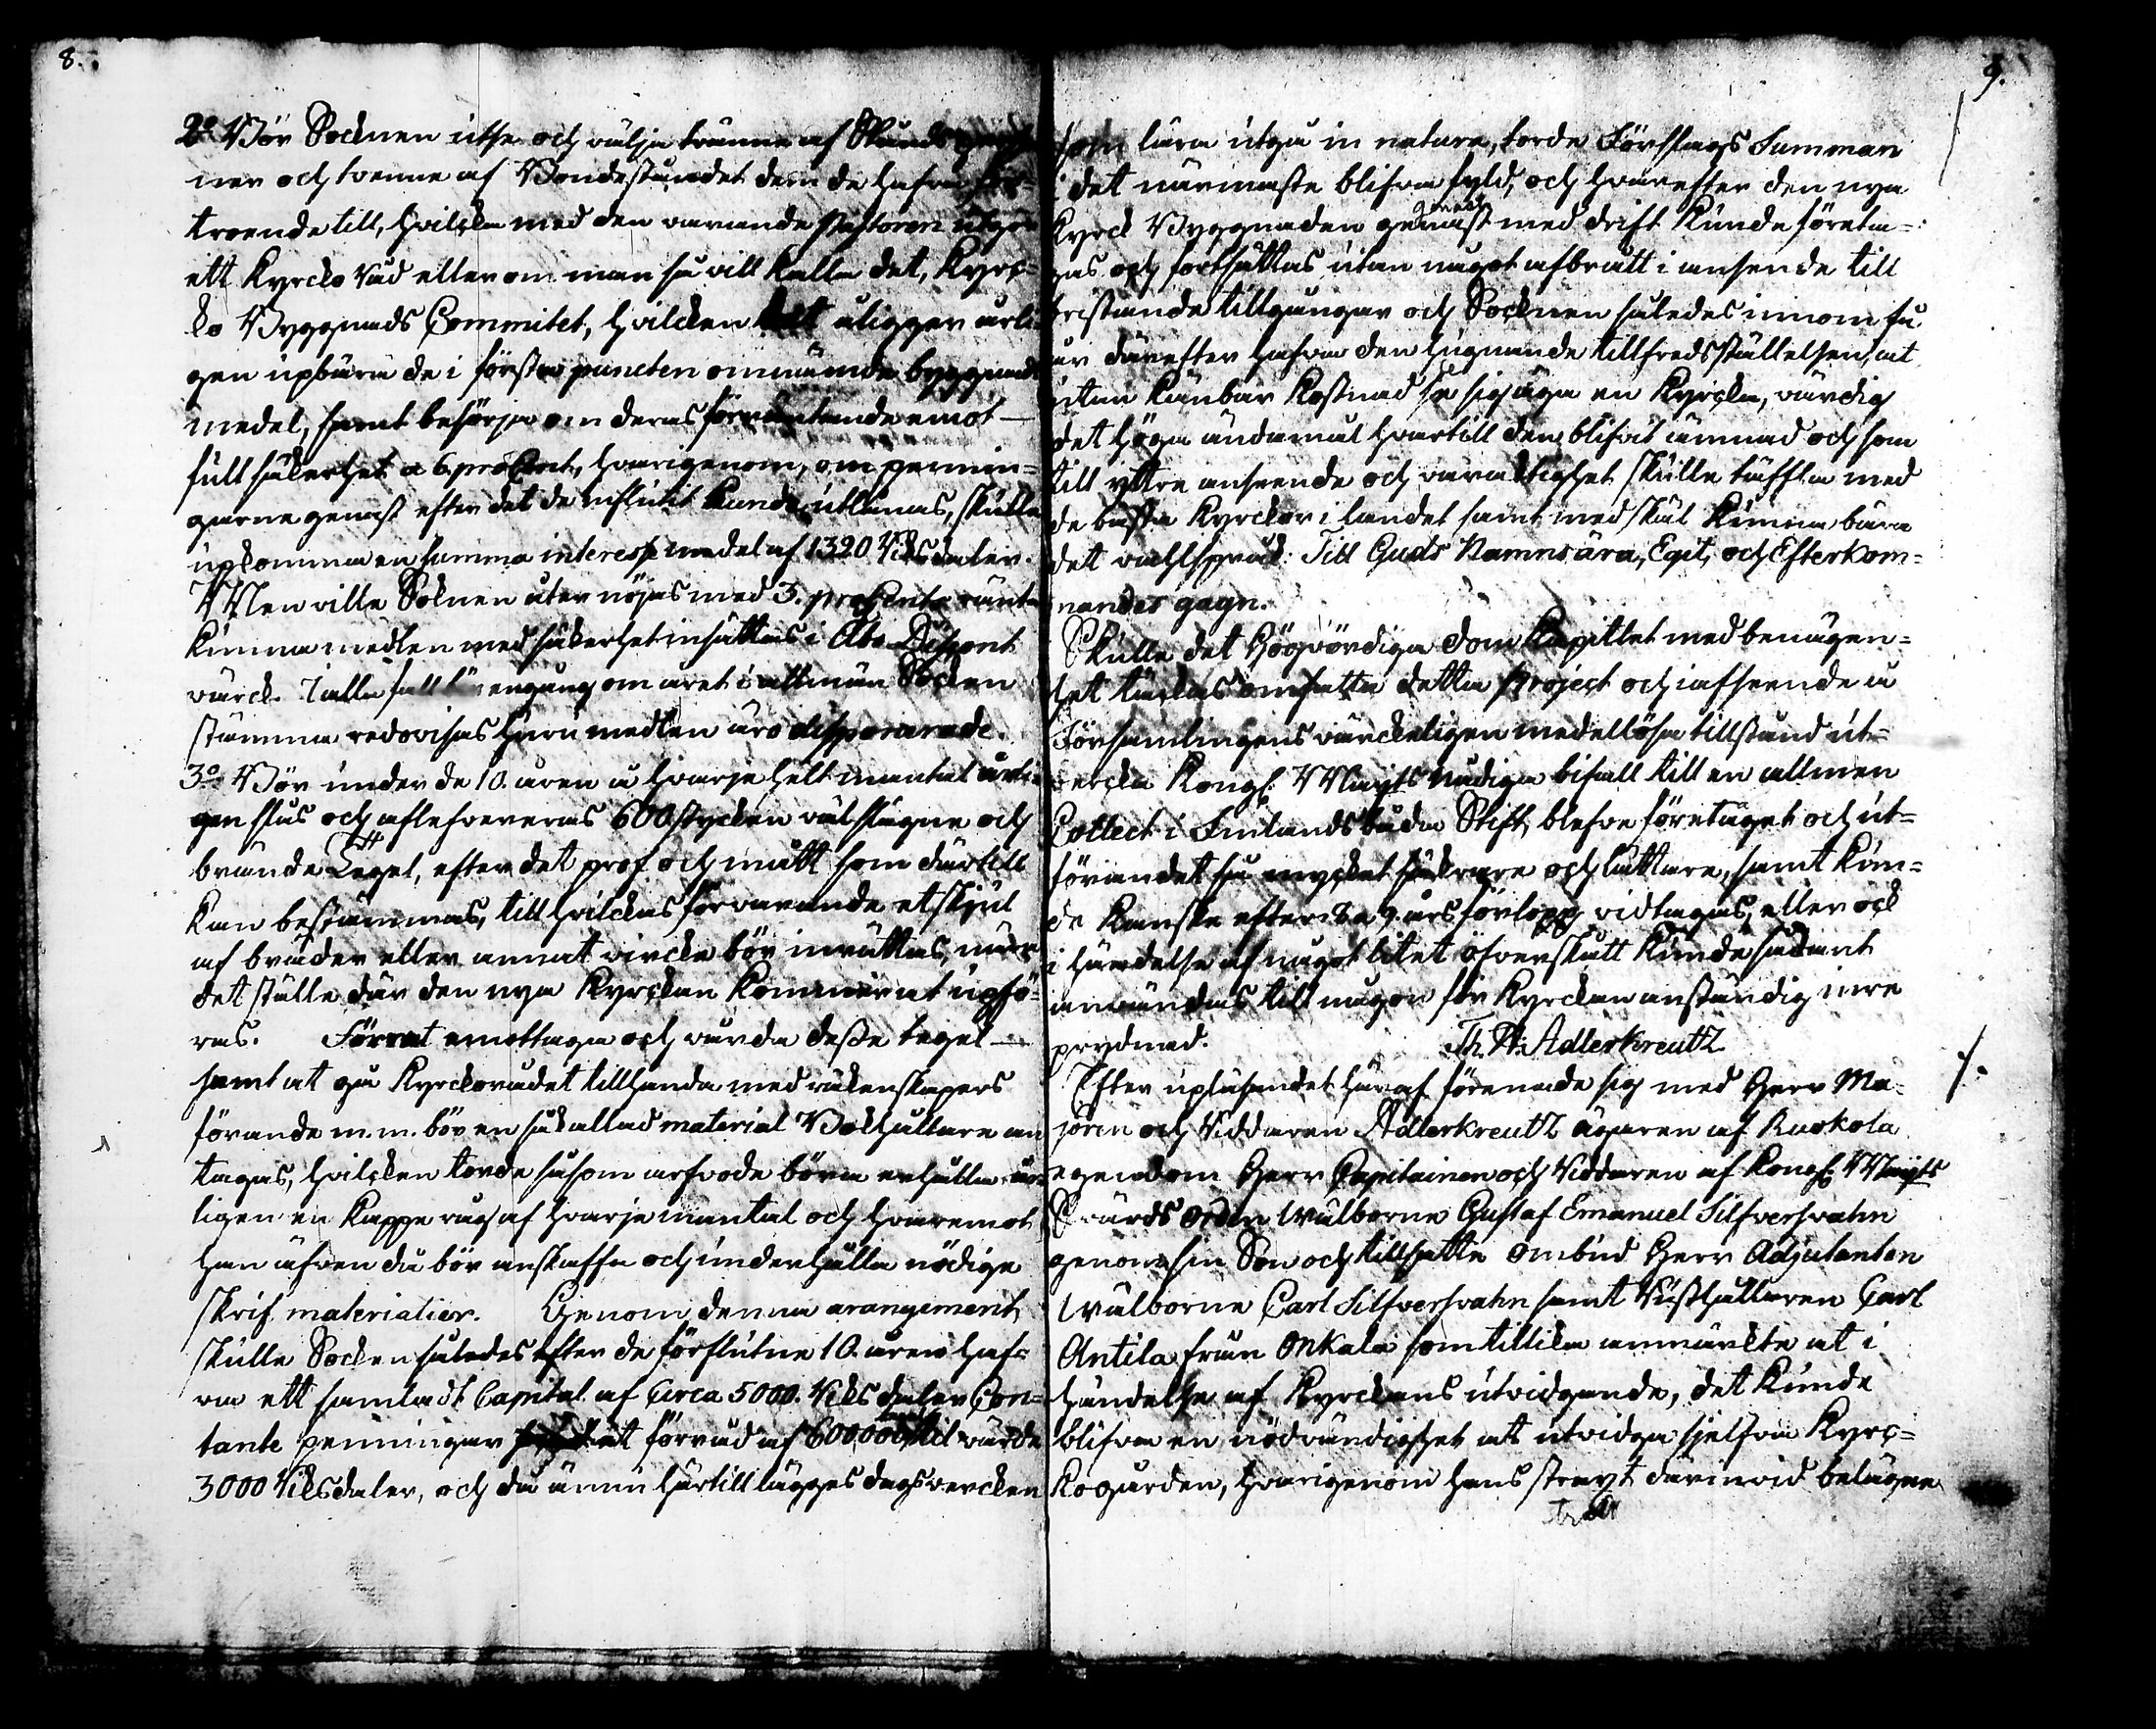 8.
2o Bör Socknen utse och välja tvänne af Stånds personer
ner och tvenne af Bondeståndet dem de hafva för-
troende till, hvilcka med den varande Pastoren utgör
ett Kyrcko råd eller om man så vill kalla det, Kyrc-
ko Byggnads Commitet, hvilcken det åligger årli
gen upbära de i första puncten omnämnde byggnads
medel, samt besörja om deras förräntande emot
full säkerhet a 6 proCent, hvarigenom, om pennin-
garne genast efter det de influtit kunde utlånas, skulle
upkomma en summa interesse medel af 1320 Riksdaler.
Men ville Soknen åter nöjas med 3. proCents ränta
kunna medlen med säkerhet insättas i Åbo Discont
värck. I alla fall engång om året i allmän Socken
stämma redovisas huru medlen äro disponerade.
3o Bör under de 10. åren å hvarje helt mantal årli-
gen slås och aflefvereras 600 stycken väl slagne och
brände Tegel, efter det prof och mått som därtill
kan bestämmas, till hvilckas förvarande et skjul
af bräder eller annat vircke bör inrättas, nära
det ställe där den nya Kyrckan kommer at upfö-
ras. Förrat emottaga och vårda desse tegel
samt at gå Kyrckorådet tillhanda med räkenskapers
förande m.m. bör en så kallad material Bokhållare an
tagas, hvilcken torde såsom arfvode böra erhålla år-
ligen en Kappe råg af hvarje mantal och hvaremot
han äfven då bör anskaffa och underhålla nödige
skrif materialier. Genom denna arangement
skulle Socken således efter de förflutne 10. åren haf-
va ett samladt Capital af Circa 5000. Riksdaler Con-
tante penningar et förråd af 60000 tegel värde
3000 Riksdaler, och då ännu härtill lägges dagsvercken
9.
som lära utgå in natura, torde Förslags Summan
i det närmaste blifva fyld, och hvarefter den nya
Kyrck Byggnaden genast med drift kunde företa-
gas och fortsättas utan något afbrått i anseende till
bristande tillgångar och Socknen således innom få
år därefter hafva den hugnande tillfredsställelsen, at
utan känbar kostnad se sig äga en Kyrcka, värdig
det höga ändamål hvartill den blifvit ämnad och som
till yttre anseende och varaktighet skulle täffla med
de bästa Kyrckor i landet samt med skäl kunna bära
det valspråk: Till Guds Namns ära, Egit, och Efterkom-
mandes gagn.
Skulle det Högvördiga Dom Kapitlet med benägen-
het täckas omfatta detta Project och i afseende å
Församlingens värckeligen medellösa tillstånd ut-
vercka Kongl. Majts nådiga bifall till en allmen
Collect i Finlands båda Stift, blefve företaget och ut-
förandet så mycket säkrare och lättare, samt kun-
de kanske efter 8 a 9. års förlopp vidtagas, eller ock
i händelse af något litet öfverskått kunde sådant
användas till någon för Kyrckan anständig inre
prydnad. Th. H. Adlerkreutz
Efter uplåsandet häraf förenade sig med Herr Ma-
joren och Riddaren Adlerkreutz ägaren af Kuokola
egendom Herr Capitainen och Riddaren af Kongl. Majts
Svärds Orden Wälborne Gustaf Emanuel Silfversvahn
genom sin Son och tillsatte ombud Herr Adjutanten
Wälborne Carl Silfversvahn samt Rusthållaren Carl
Antila från Onkala som tillika anmärkte at i
händelse af Kyrckans utvidgande, det kunde
blifva en nödvändighet at utvidga sjelfva Kyrc-
kogården, hvarigenom hans strayt därinvid belägne